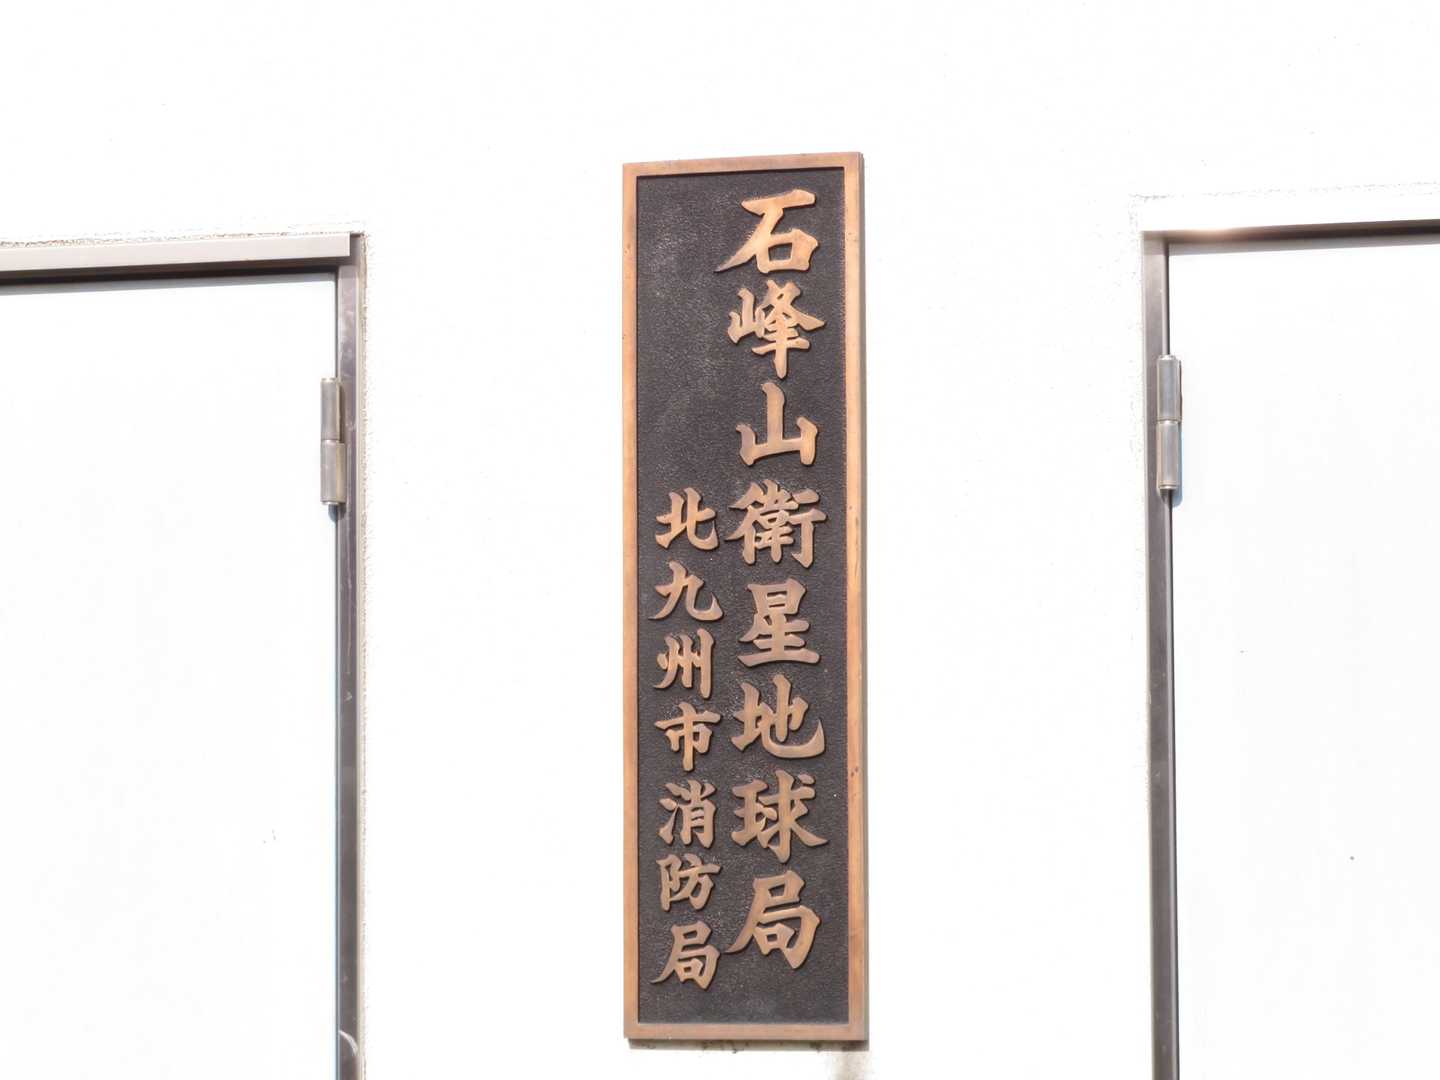 石峰山衛星地球局
北九州市消防局